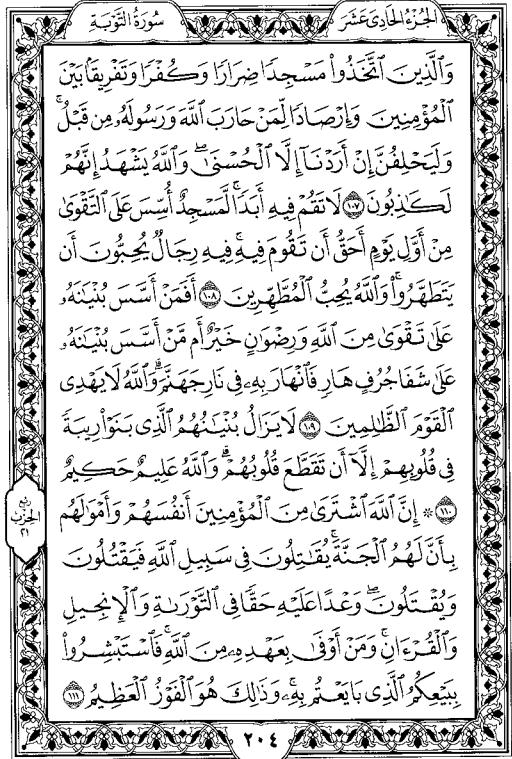 الجُزْءُ الحَادِىَ عَشَرَ
سُورَةُ التَّوْبَةِ
وَٱلَّذِينَ ٱتَّخَذُواْ مَسْجِدًا ضِرَارًا وَكُفْرًا وَتَفْرِيقًۢا بَيْنَ
ٱلْمُؤْمِنِينَ وَإِرْصَادًا لِّمَنْ حَارَبَ ٱللَّهَ وَرَسُولَهُۥ مِن قَبْلُۚ
وَلَيَحْلِفُنَّ إِنْ أَرَدْنَآ إِلَّا ٱلْحُسْنَىٰۖ وَٱللَّهُ يَشْهَدُ إِنَّهُمْ
لَكَٰذِبُونَ ١٠٧ لَا تَقُمْ فِيهِ أَبَدًاۚ لَّمَسْجِدٌ أُسِّسَ عَلَى ٱلتَّقْوَىٰ
مِنْ أَوَّلِ يَوْمٍ أَحَقُّ أَن تَقُومَ فِيهِۚ فِيهِ رِجَالٌ يُحِبُّونَ أَن
يَتَطَهَّرُواْۚ وَٱللَّهُ يُحِبُّ ٱلْمُطَّهِّرِينَ ١٠٨ أَفَمَنْ أَسَّسَ بُنْيَٰنَهُۥ
عَلَىٰ تَقْوَىٰ مِنَ ٱللَّهِ وَرِضْوَٰنٍ خَيْرٌ أَم مَّنْ أَسَّسَ بُنْيَٰنَهُۥ
عَلَىٰ شَفَا جُرُفٍ هَارٍ فَٱنْهَارَ بِهِۦ فِى نَارِ جَهَنَّمَۗ وَٱللَّهُ لَا يَهْدِى
ٱلْقَوْمَ ٱلظَّٰلِمِينَ ١٠٩ لَا يَزَالُ بُنْيَٰنُهُمُ ٱلَّذِى بَنَوْاْ رِيبَةً
فِى قُلُوبِهِمْ إِلَّآ أَن تَقَطَّعَ قُلُوبُهُمْۗ وَٱللَّهُ عَلِيمٌ حَكِيمٌ
١١٠ ۞ إِنَّ ٱللَّهَ ٱشْتَرَىٰ مِنَ ٱلْمُؤْمِنِينَ أَنفُسَهُمْ وَأَمْوَٰلَهُم
بِأَنَّ لَهُمُ ٱلْجَنَّةَۚ يُقَٰتِلُونَ فِى سَبِيلِ ٱللَّهِ فَيَقْتُلُونَ
وَيُقْتَلُونَۖ وَعْدًا عَلَيْهِ حَقًّا فِى ٱلتَّوْرَىٰةِ وَٱلْإِنجِيلِ
وَٱلْقُرْءَانِۚ وَمَنْ أَوْفَىٰ بِعَهْدِهِۦ مِنَ ٱللَّهِۚ فَٱسْتَبْشِرُواْ
بِبَيْعِكُمُ ٱلَّذِى بَايَعْتُم بِهِۦۚ وَذَٰلِكَ هُوَ ٱلْفَوْزُ ٱلْعَظِيمُ ١١١
ربع
الحزب
٢١
٢٠٤